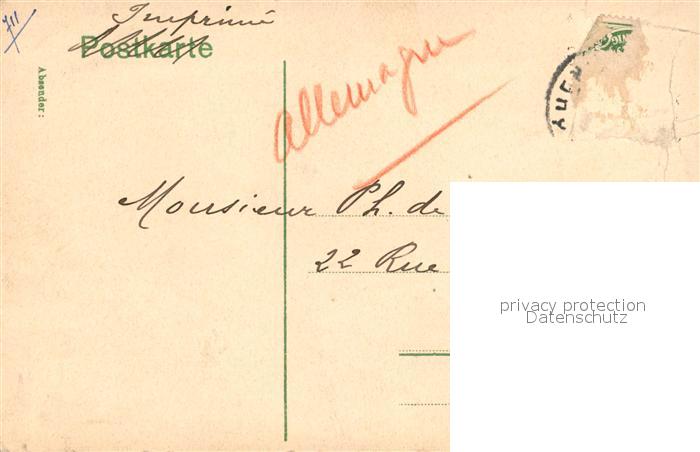 711
Imprimé
Postkarte
Absender:
Allemagne
Monsieur Ph. de
22 Rue
privacy protection
Datenschutz